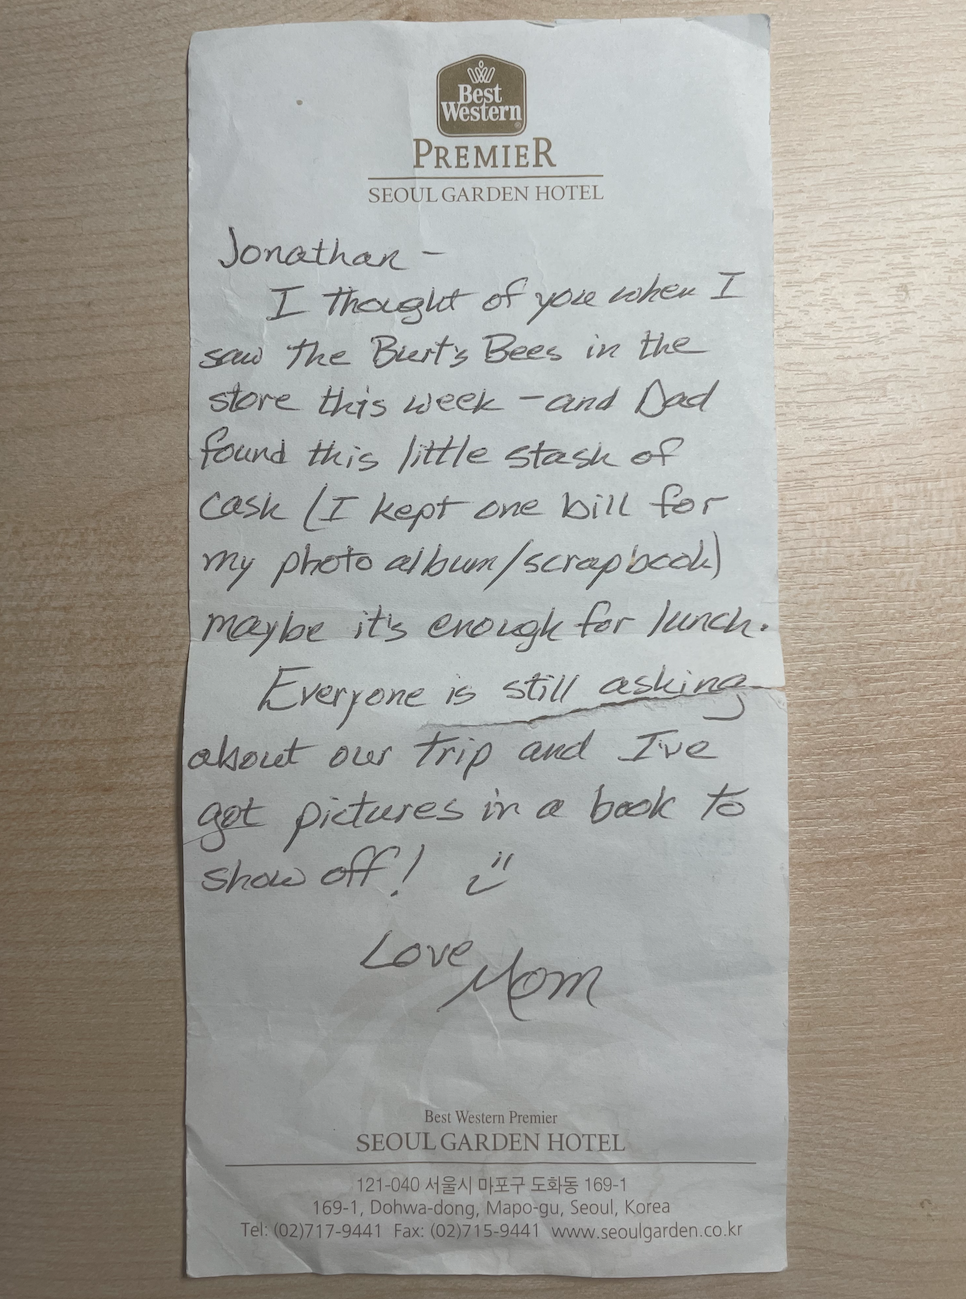 Best
Western
PREMIER
SEOUL GARDEN HOTEL
Jonathan -
I thought of you when I
saw the Burt's Bees in the
store this week - and Dad
found this little stash of
cash (I kept one bill for
my photo album/scrapbook)
maybe it's enough for lunch.
Everyone is still asking
about our trip and I've
got pictures in a book to
show off!
Love,
Mom
Best Western Premier
SEOUL GARDEN HOTEL
121-040 서울시 마포구 도화동 169-1
169-1, Dohwa-dong, Mapo-gu, Seoul, Korea
Tel: (02)717-9441 Fax: (02)715-9441 www.seoulgarden.co.kr